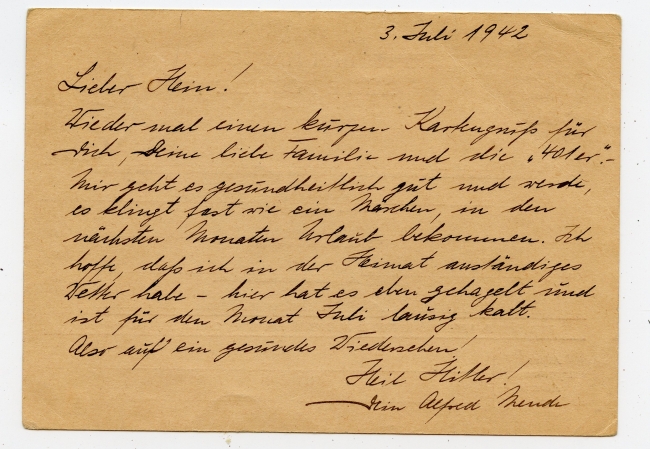 3. Juli 1942
Lieber Hein!
Wieder mal einen kurzen Kartengruß für
Dich, Deine liebe Familie und die „401er“.-
Mir geht es gesundheitlich gut und werde,
es klingt fast wie ein Märchen, in den
nächsten Monaten Urlaub bekommen. Ich
hoffe, daß ich in der Heimat anständiges
Wetter habe – hier hat es eben gehagelt und
ist für den Monat Juli lausig kalt.
Also auf ein gesundes Wiedersehen!
Heil Hitler!
Dein Alfred Mende